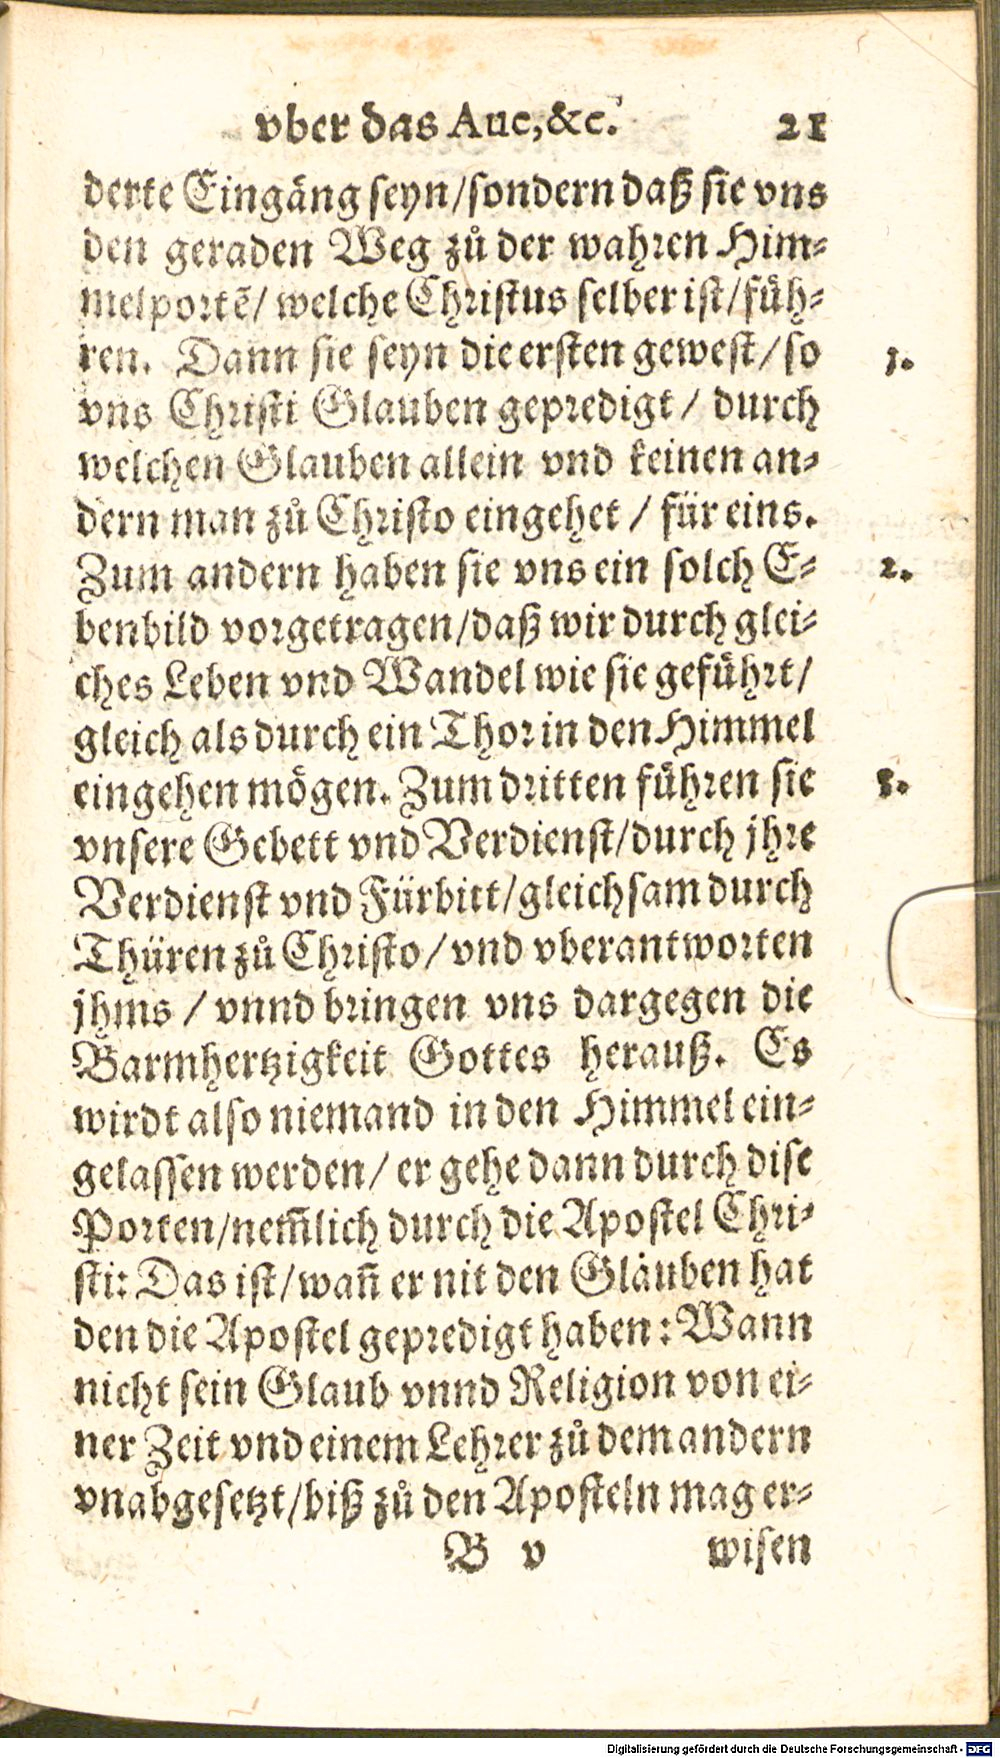 vber das Aue, &c. 21
derte Eingäng seyn/sondern daß sie vns
den geraden Weg zů der wahren Him-
melportẽ/ welche Christus selber ist/füh-
ren. Dann sie seyn die ersten gewest/so 1.
vns Christi Glauben gepredigt/ durch
welchen Glauben allein vnd keinen an-
dern man zů Christo eingehet / für eins.
Zum andern haben sie vns ein solch E- 2.
benbild vorgetragen/daß wir durch glei-
ches Leben vnd Wandel wie sie geführt/
gleich als durch ein Thor in den Himmel
eingehen mögen. Zum dritten führen sie 3.
vnsere Gebett vnd Verdienst/durch jhre
Verdienst vnd Fürbitt/gleichsam durch
Thüren zů Christo/vnd vberantworten
jhms / vnnd bringen vns dargegen die
Barmhertzigkeit Gottes herauß. Es
wirdt also niemand in den Himmel ein-
gelassen werden/ er gehe dann durch dise
Porten/nem̃lich durch die Apostel Chri-
sti: Das ist/wañ er nit den Glauben hat
den die Apostel gepredigt haben: Wann
nicht sein Glaub vnnd Religion von ei-
ner Zeit vnd einem Lehrer zů dem andern
vnabgesetzt/biß zů den Aposteln mag er-
B v wisen
Digitalisierung gefördert durch die Deutsche Forschungsgemeinschaft - DFG